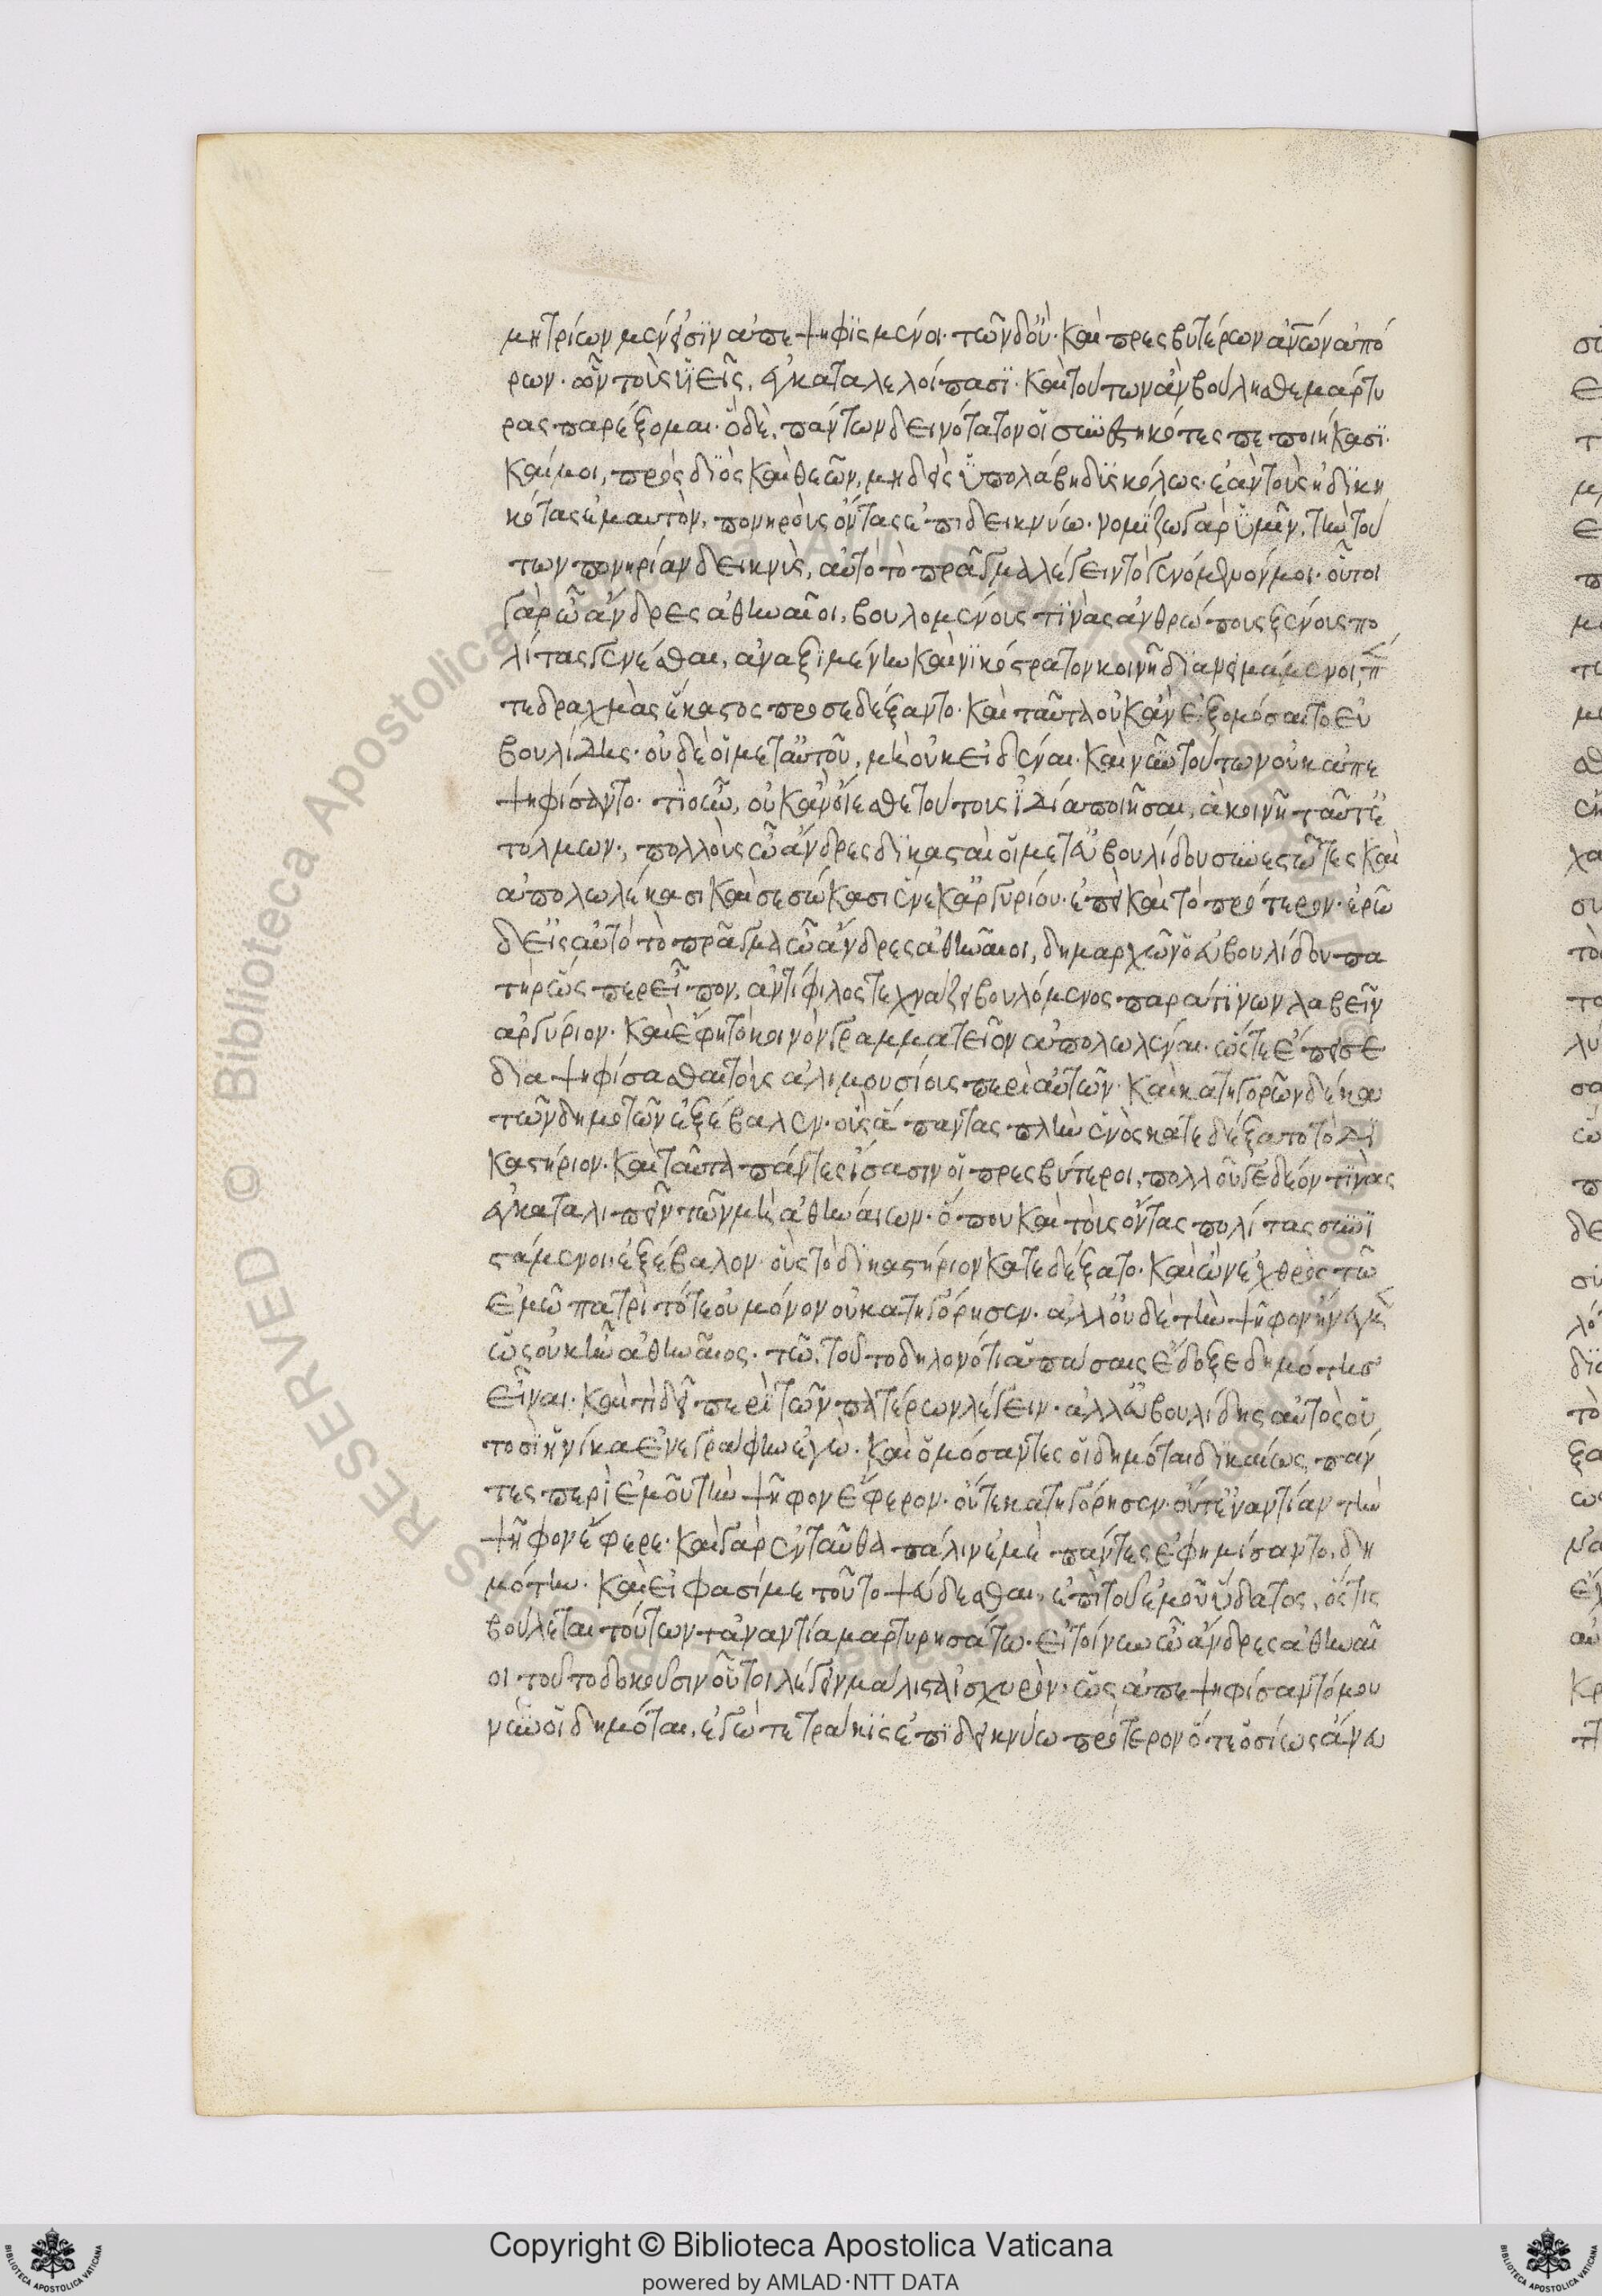 μητρίων μέν εἰσὶν ἀπεψηφϊσμένοι· τῶν δ' οὔ· καὶ πρεσβυτέρων ἀνδρῶν ἀπό
ρων· ὧν τοὺς ὑεῖς, ἐγκαταλελοίπασϊ· καὶ τούτων ἂν βούλησθε μάρτυ
ρας παρέξομαι· ὃ δὲ, πάντων δεινότατον οἱ συνεστηκότες πεποιήκασϊ·
καί μοι, πρὸς διὸς καὶ θεῶν, μηδεὶς ὑπολάβη δϋσκόλως· ἐὰν τοὺς ἠδϊκη
κότας ἐμαυτὸν, πονηροὺς ὄντας ἐπιδεικνύω· νομίζω γὰρ ὑμῖν, τὴν τού
των πονηρίαν δεικνὺς, αὐτὸ τὸ πρᾶγμα λέγειν τὸ γενόμενόν μοι· οὗτοι
γὰρ ὦ ἄνδρες ἀθηναῖοι, βουλομένους τϊνὰς ἀνθρώπους ξένους πο
λίτας γενέσθαι, ἀναξϊμένην καὶ νϊκόστρατον κοινῆ διανειμάμενοι, πέν
τε δραχμὰς ἕκαστος προσεδέξαντο· καὶ ταῦτα οὐκ ἂν ἐξομόσαιτο εὐ
βουλίδης· οὐδὲ οἱ μετ' αὐτοῦ, μὴ οὐκ εἰδέναι· καὶ νῦν τούτων οὐκ ἀπε
ψηφίσαντο· τί οὖν, οὐκ ἂν οἴεσθε τούτους ἰδία ποιῆσαι, ἃ κοινῆ ταῦτ' ἐ
τόλμων., πολλοὺς ὦ ἄνδρες δϊκασταὶ οἱ μετ' εὐβουλίδου συνεστῶτες καὶ
ἀπολωλέκασι καὶ σεσώκασι ἕνεκ' ἀργυρίου· ἐπεὶ καὶ τὸ πρότερον· ἐρῶ
δ' εἰς αὐτὸ τὸ πρᾶγμα ὦ ἄνδρες ἀθηναῖοι, δημαρχῶν ὁ εὐβουλίδου πα
τὴρ ὥς περ εἶπον, ἀντίφιλος τεχνάζει βουλόμενος παρά τϊνων λαβεῖν
ἀργύριον· καὶ ἔφη τὸ κοινὸν γραμματεῖον ἀπολωλέναι· ὥστε ἔπεισε
διαψηφίσασθαι τοὺς ἁλιμουσίους περὶ αὑτῶν· καὶ κατηγορῶν δέκα
τῶν δημοτῶν ἐξέβαλεν· οὓς ἅπαντας πλὴν ἑνὸς κατεδέξατο τὸ δϊ
καστήριον· καὶ ταῦτα πάντες ἴσασιν οἱ πρεσβύτεροι, πολλοῦ γε δέον τϊνὰς
ἐγκαταλιπεῖν τῶν μὴ ἀθηναίων· ὅπου καὶ τοὺς ὄντας πολίτας συνϊ
στάμενοι· ἐξέβαλον· οὓς τὸ δικαστήριον κατεδέξατο· καὶ ὢν ἐχθρὸς τῷ
ἐμῷ πατρὶ τότε οὐ μόνον οὐ κατηγόρησεν· ἀλλ' οὐδὲ τὴν ψῆφον ἤνεγκεν
ὡς οὐκ ἦν ἀθηναῖος· τῷ, τοῦτο δῆλον ὅτι ἁπάσαις ἔδοξε δημότης
εἶναι· καὶ τί δεῖ περὶ τῶν πατέρων λέγειν· ἀλλ' εὐβουλίδης αὐτὸς οὑ
τοσὶ ἡνίκα ἐνεγράφην ἐγὼ· καὶ ὀμόσαντες οἱ δημόται δϊκαίως, πάν
τες περὶ ἐμοῦ τὴν ψῆφον ἔφερον· οὔτε κατηγόρησεν· οὔτ' ἐναντίαν τὴν
ψῆφον ἔφερε· καὶ γὰρ ἐνταῦθα πάλιν ἐμὲ πάντες ἐψημίσαντο, δη
μότην· καὶ εἰ φασί με τοῦτο ψεύδεσθαι, ἐπὶ τοῦ ἐμοῦ ὕδατος, ὅστις
βούλεται τούτων τἀναντία μαρτυρησάτω· εἰ τοίνυν ὦ ἄνδρες ἀθηναῖ
οι τοῦτο δοκοῦσιν οὗτοι λέγειν μάλιστ' ἰσχυρὸν, ὡς ἀπεψηφίσαντό μου
νῦν οἱ δημόται, ἐγὼ τετράκϊς ἐπϊδεικνύω πρότερον ὅτε ὁσίως ἄνευ